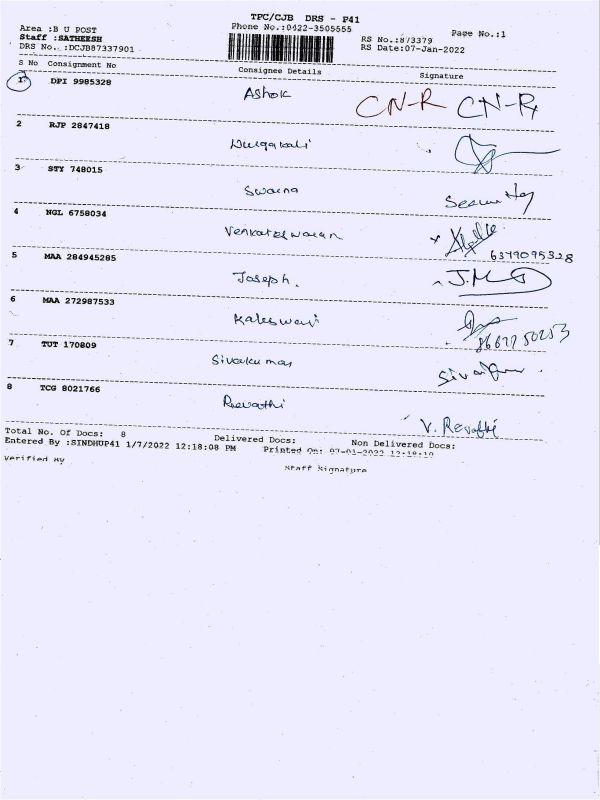 TPC/CJB DRS - P41
Area :B U POST
Phone No.:0422-3505555
Page No.:1
Staff :SATHEESH
RS No.:873379
DRS No.:DCJB87337901
RS Date:07-Jan-2022
S No Consignment No Consignee Details Signature
1 DPI 9985328 Ashok CN-R CN-R
2 RJP 2847418 Durgakali
3 STY 748015 Swarna
4 NGL 6758034 Venkateswaran
6379095328
5 MAA 284945285 Joseph.
6 MAA 272987533 Kaleswari
7 TUT 170809 Sivakumar
8 TCG 8021766 Revathi
V. Revathi
Total No. Of Docs: 8 Delivered Docs: Non Delivered Docs:
Entered By :SINDHUP41 1/7/2022 12:18:08 PM Printed On: 07-01-2022 12:18:10
Verified By Staff Signature